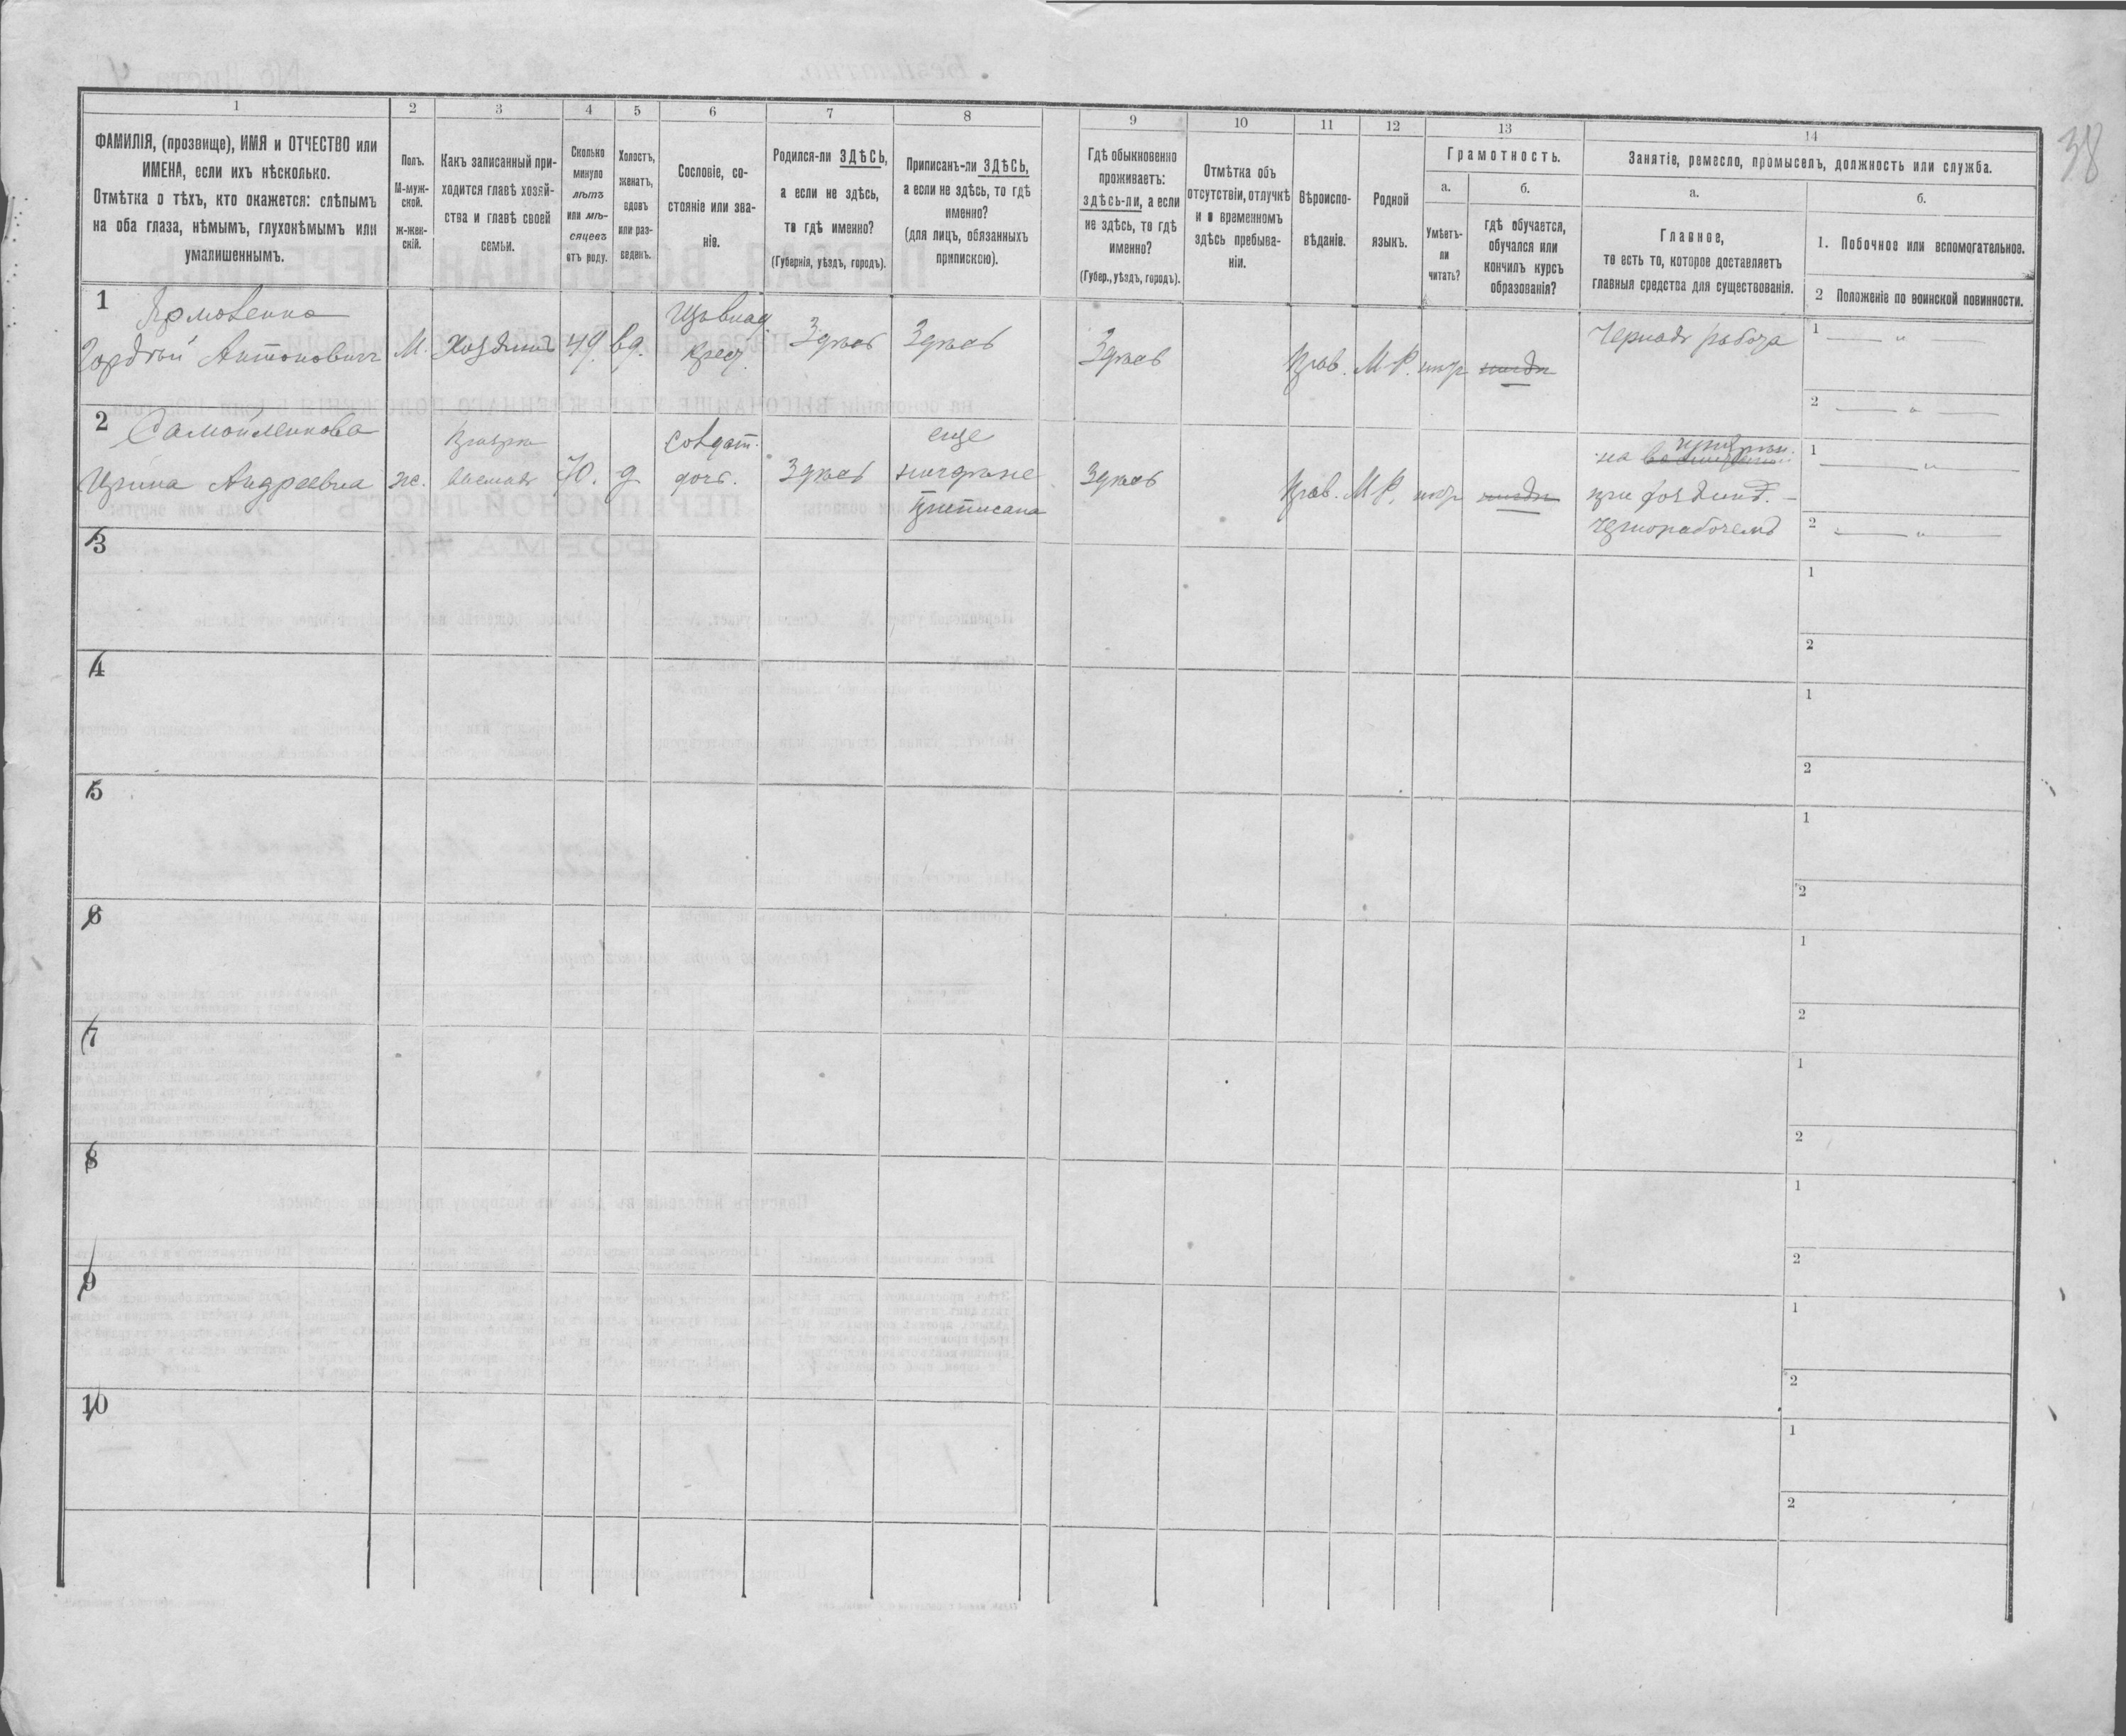 38
1
2
3
4
5
6
7
8
9
10
11
12
13
14
ФАМИЛІЯ, (прозвище), ИМЯ и ОТЧЕСТВО или
ИМЕНА, если ихъ нѣсколько.
Отмѣтка о тѣхъ, кто окажется: слѣпымъ
на оба глаза, нѣмымъ, глухонѣмымъ или
умалишеннымъ.
Полъ.
М-муж-
ской.
ж-жен-
скій.
Какъ записанный при-
ходится главѣ хозяй-
ства и главѣ своей
семьи.
Сколько
минуло
лѣтъ
или мѣ-
сяцевъ
отъ роду.
Холостъ,
женатъ,
вдовъ
или раз-
веденъ.
Сословіе, со-
стояніе или зва-
ніе.
Родился-ли ЗДѢСЬ,
а если не здѣсь,
то гдѣ именно?
(Губернія, уѣздъ, городъ).
Приписанъ-ли ЗДѢСЬ,
а если не здѣсь, то гдѣ
именно?
(для лицъ, обязанныхъ
припискою).
Гдѣ обыкновенно
проживаетъ:
здѣсь-ли, а если
не здѣсь, то гдѣ
именно?
(Губер., уѣздъ, городъ).
Отмѣтка объ
отсутствіи, отлучкѣ
и о временномъ
здѣсь пребыва-
ніи.
Вѣроиспо-
вѣданіе.
Родной
языкъ.
Грамотность.
а.
Умѣетъ-
ли
читать?
б.
гдѣ обучается,
обучался или
кончилъ курсъ
образованія?
Занятіе, ремесло, промыселъ, должность или служба.
а.
Главное,
то есть то, которое доставляетъ
главныя средства для существованія.
б.
1. Побочное или вспомогательное.
2 Положеніе по воинской повинности.
1
Гордѣй Антоновичъ
М.
Хозяинъ
49.
вд.
крест.
Здѣсь
Здѣсь
Здѣсь
Прав.
М-Р.
нѣт
Черная работа
1 — " —
2 — " —
2
Самойленкова
Ирина Андреевна
ж.
70.
д
Солдат.
дочь.
Здѣсь
еще
нигдѣ не
приписана
Здѣсь
Прав.
М-Р.
нѣт
на
при хозяинѣ. –
чернорабочемъ
1 — " —
2 — " —
3
1
2
4
1
2
5
1
2
6
1
2
7
1
2
8
1
2
9
1
2
10
1
2